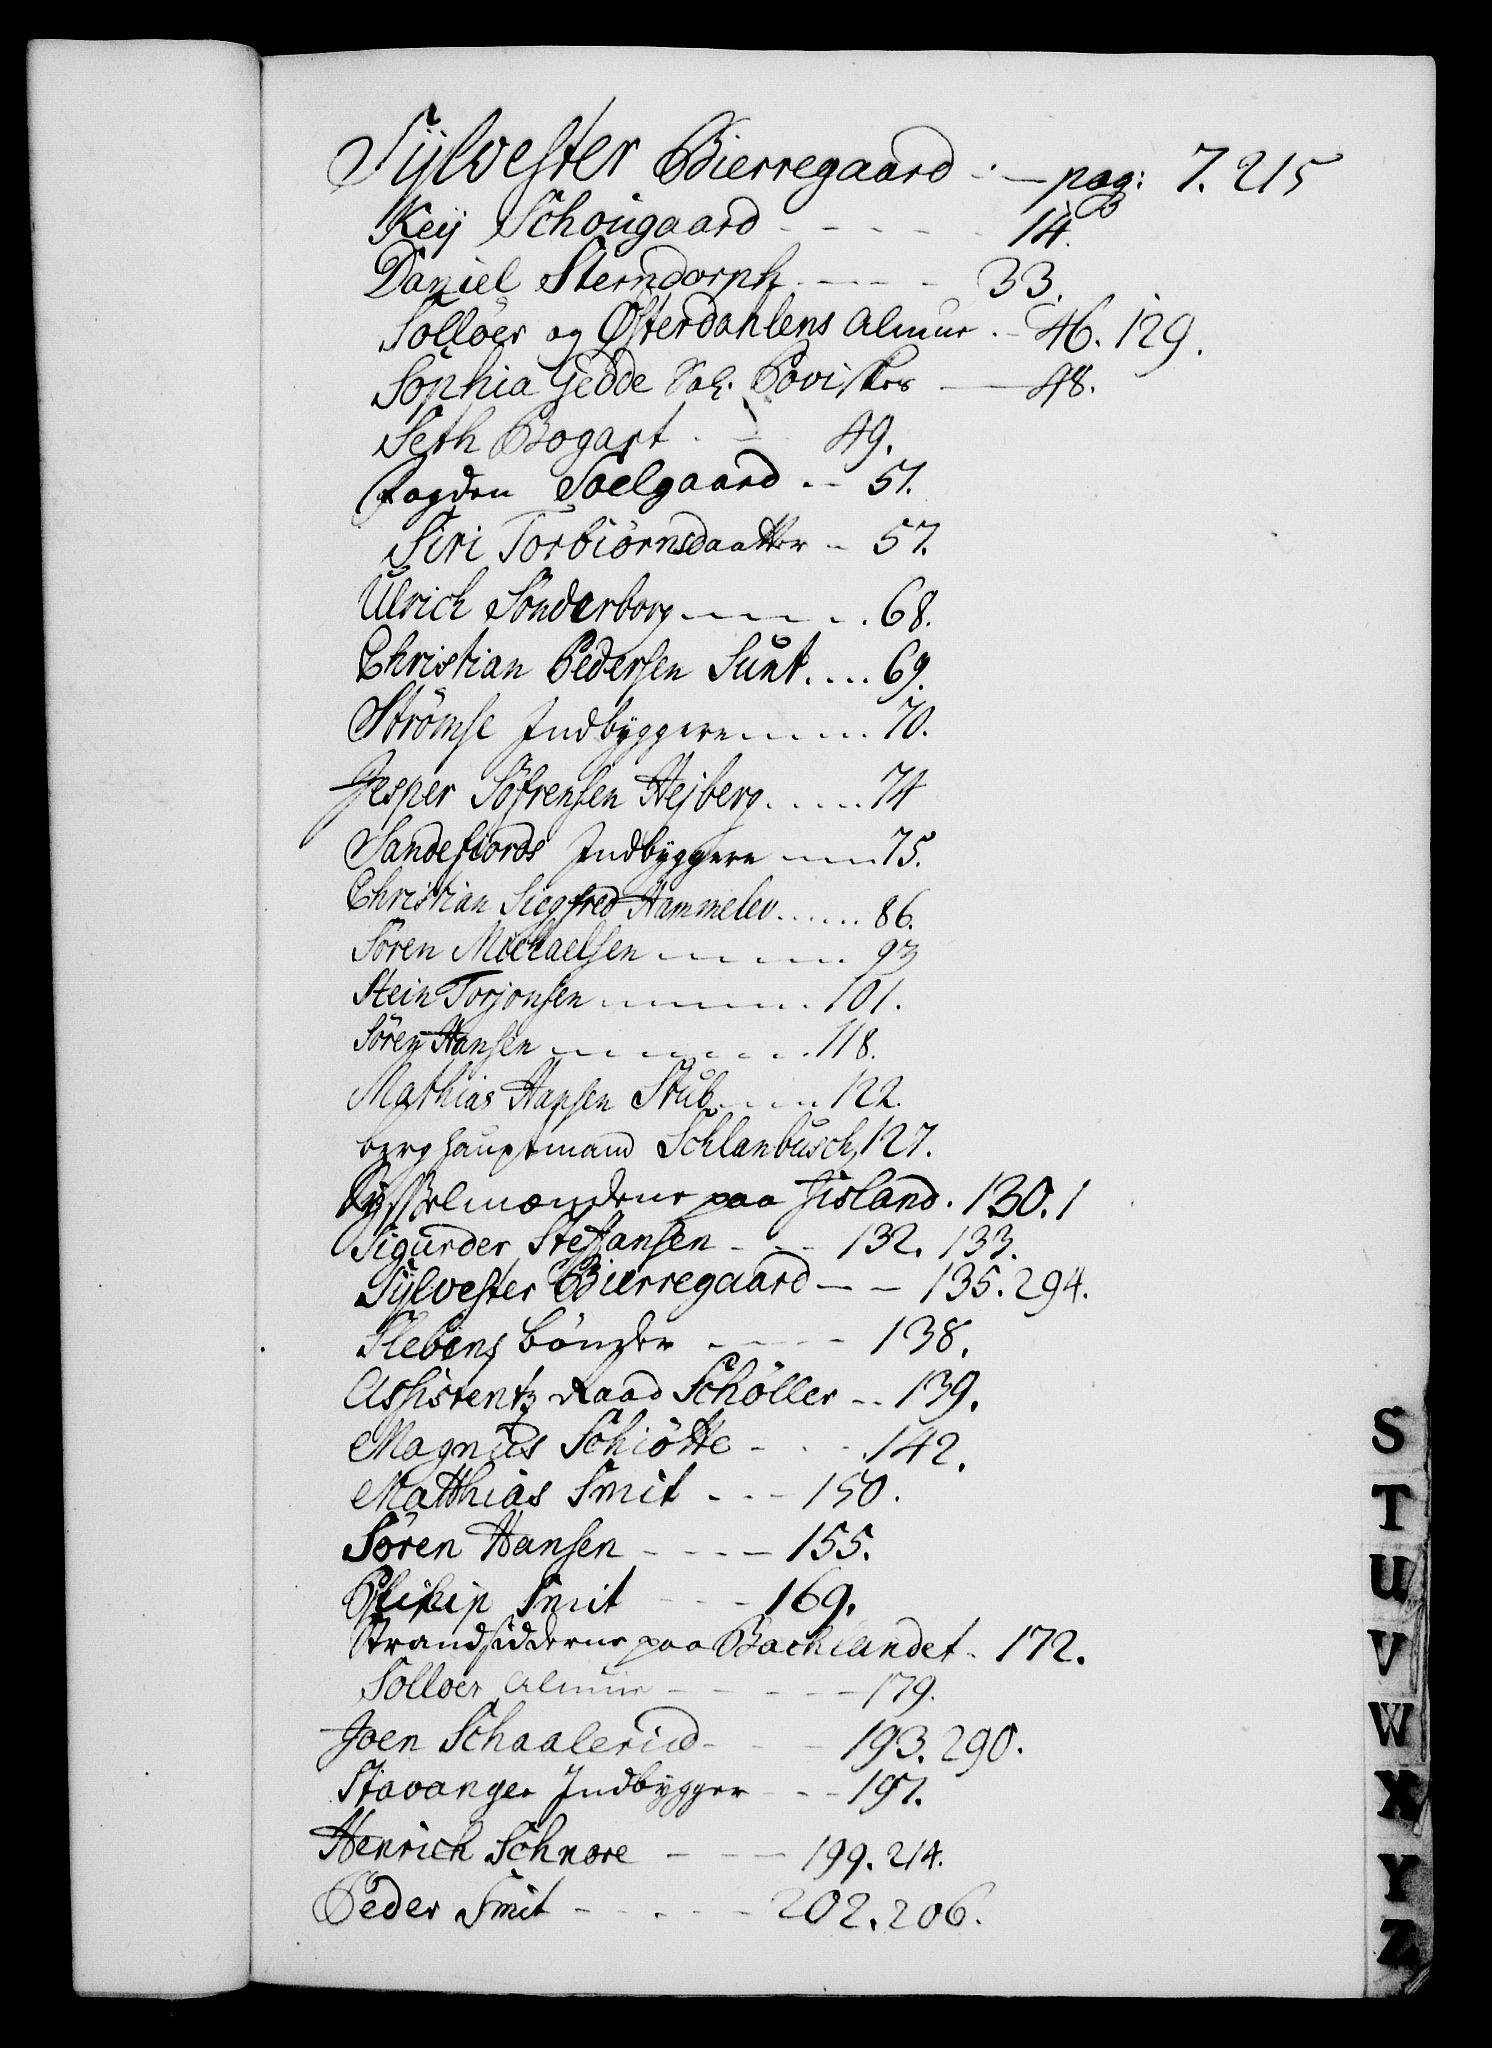 Sÿlvester Bierregaard - - pag: 7. 215
Keÿ Schougaard - - - - - 14.
Daniel Sterndorph - - - - 33.
Solløer og Østerdahlens Almue - 46. 129.
Sophia Gedde Sal. Poviskes - 48.
Seth Bogart - - 49.
Fogden Soelgaard - - 51.
Siri Torbiørnsdaatter - 57.
Ulrich Sønderborg - - - - 68.
Christian Pedersen Sunt . . . . 69.
Strømsе Indbyggere - - - - 70.
Jesper Söfrensen Hejberg . . . . . 74
Sandefiords Indbyggere - - - 75.
Christian Siegfred Hammelev . . . . . . 86.
Søren Michaelsen - - - - - 93
Stein Torjonsen - - - - - 101.
Søren Hansen - - - - - - - 118.
Mathias Hansen Stub - - - 122.
berghauptmand Schlanbusch, 127.
Sysselmændene paa Iisland . 130. 1
Sigurder Steffansen - - - 132. 133.
Sÿlvester Bierregaard - - 135. 294.
Slebens bönder - - - - - 138.
Assistentz Raad Schøller - - 139.
Magnus Schiøtte - - - 142.
Matthias Smit - - - 150.
Søren Hansen - - - - 155.
Philip Smit - - - 169.
Strandsidderne paa Bachlandet - 172.
Solloer Almue - - - - - 179.
Joen Schaalerud - - - 193. 290.
Stavanger Indbygger - - - 197.
Henrich Schnore - - - 199. 214.
Peder Smit - - - - - 202. 206.
S
T
U
V
W
X
Y
Z